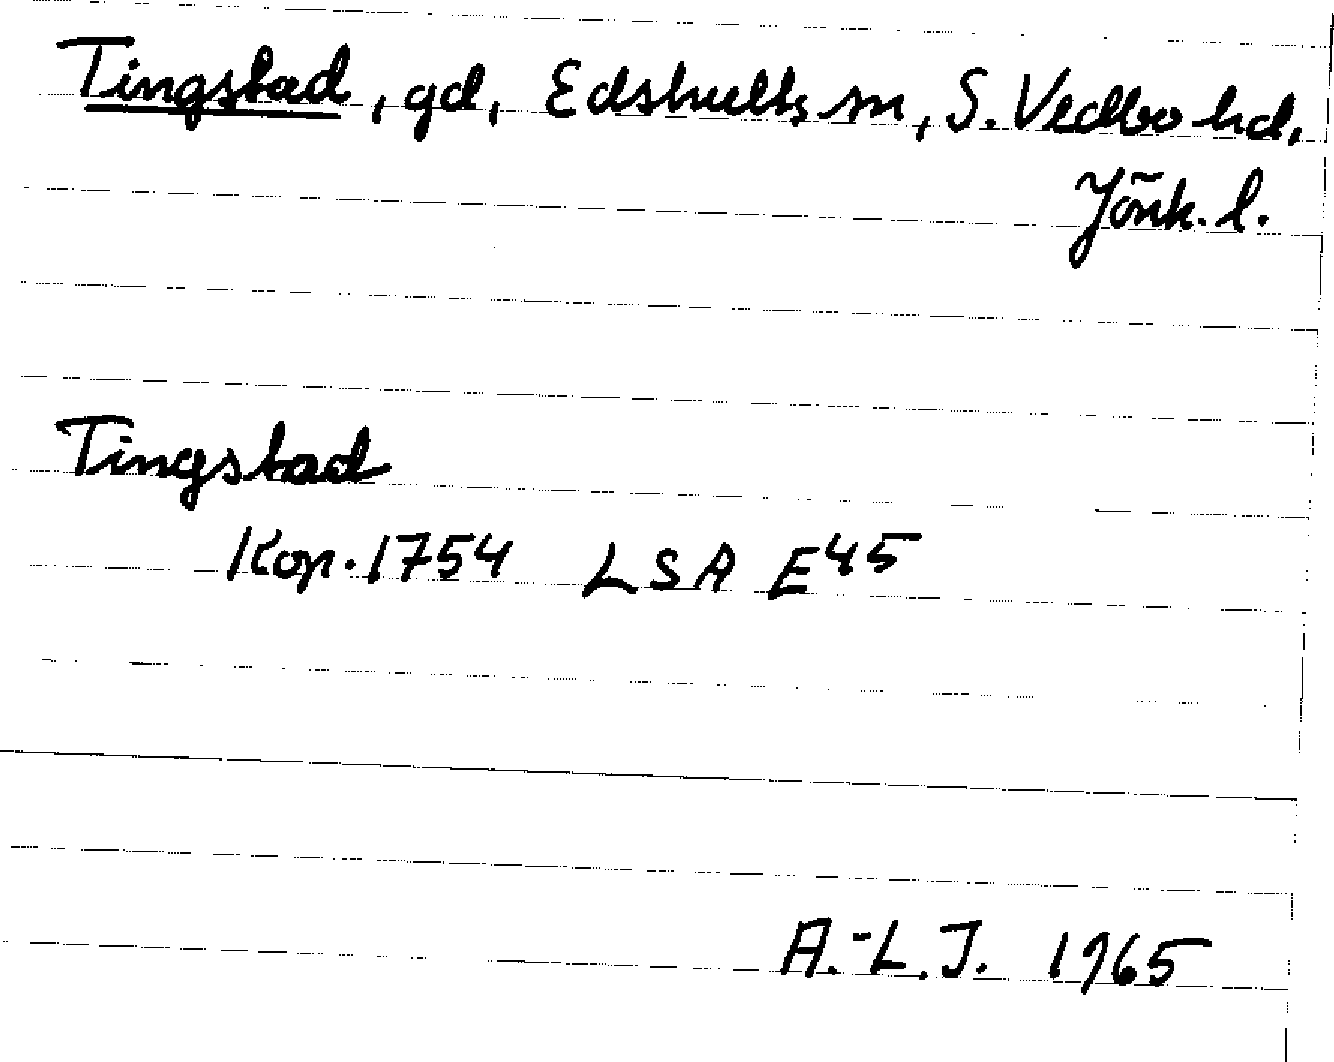 Tingstad, gd, Edshults sn, S. Vedbo hd,
Jönk. l.
Tingstad
Kop. 1754 LSA E45
A.-L.J. 1965